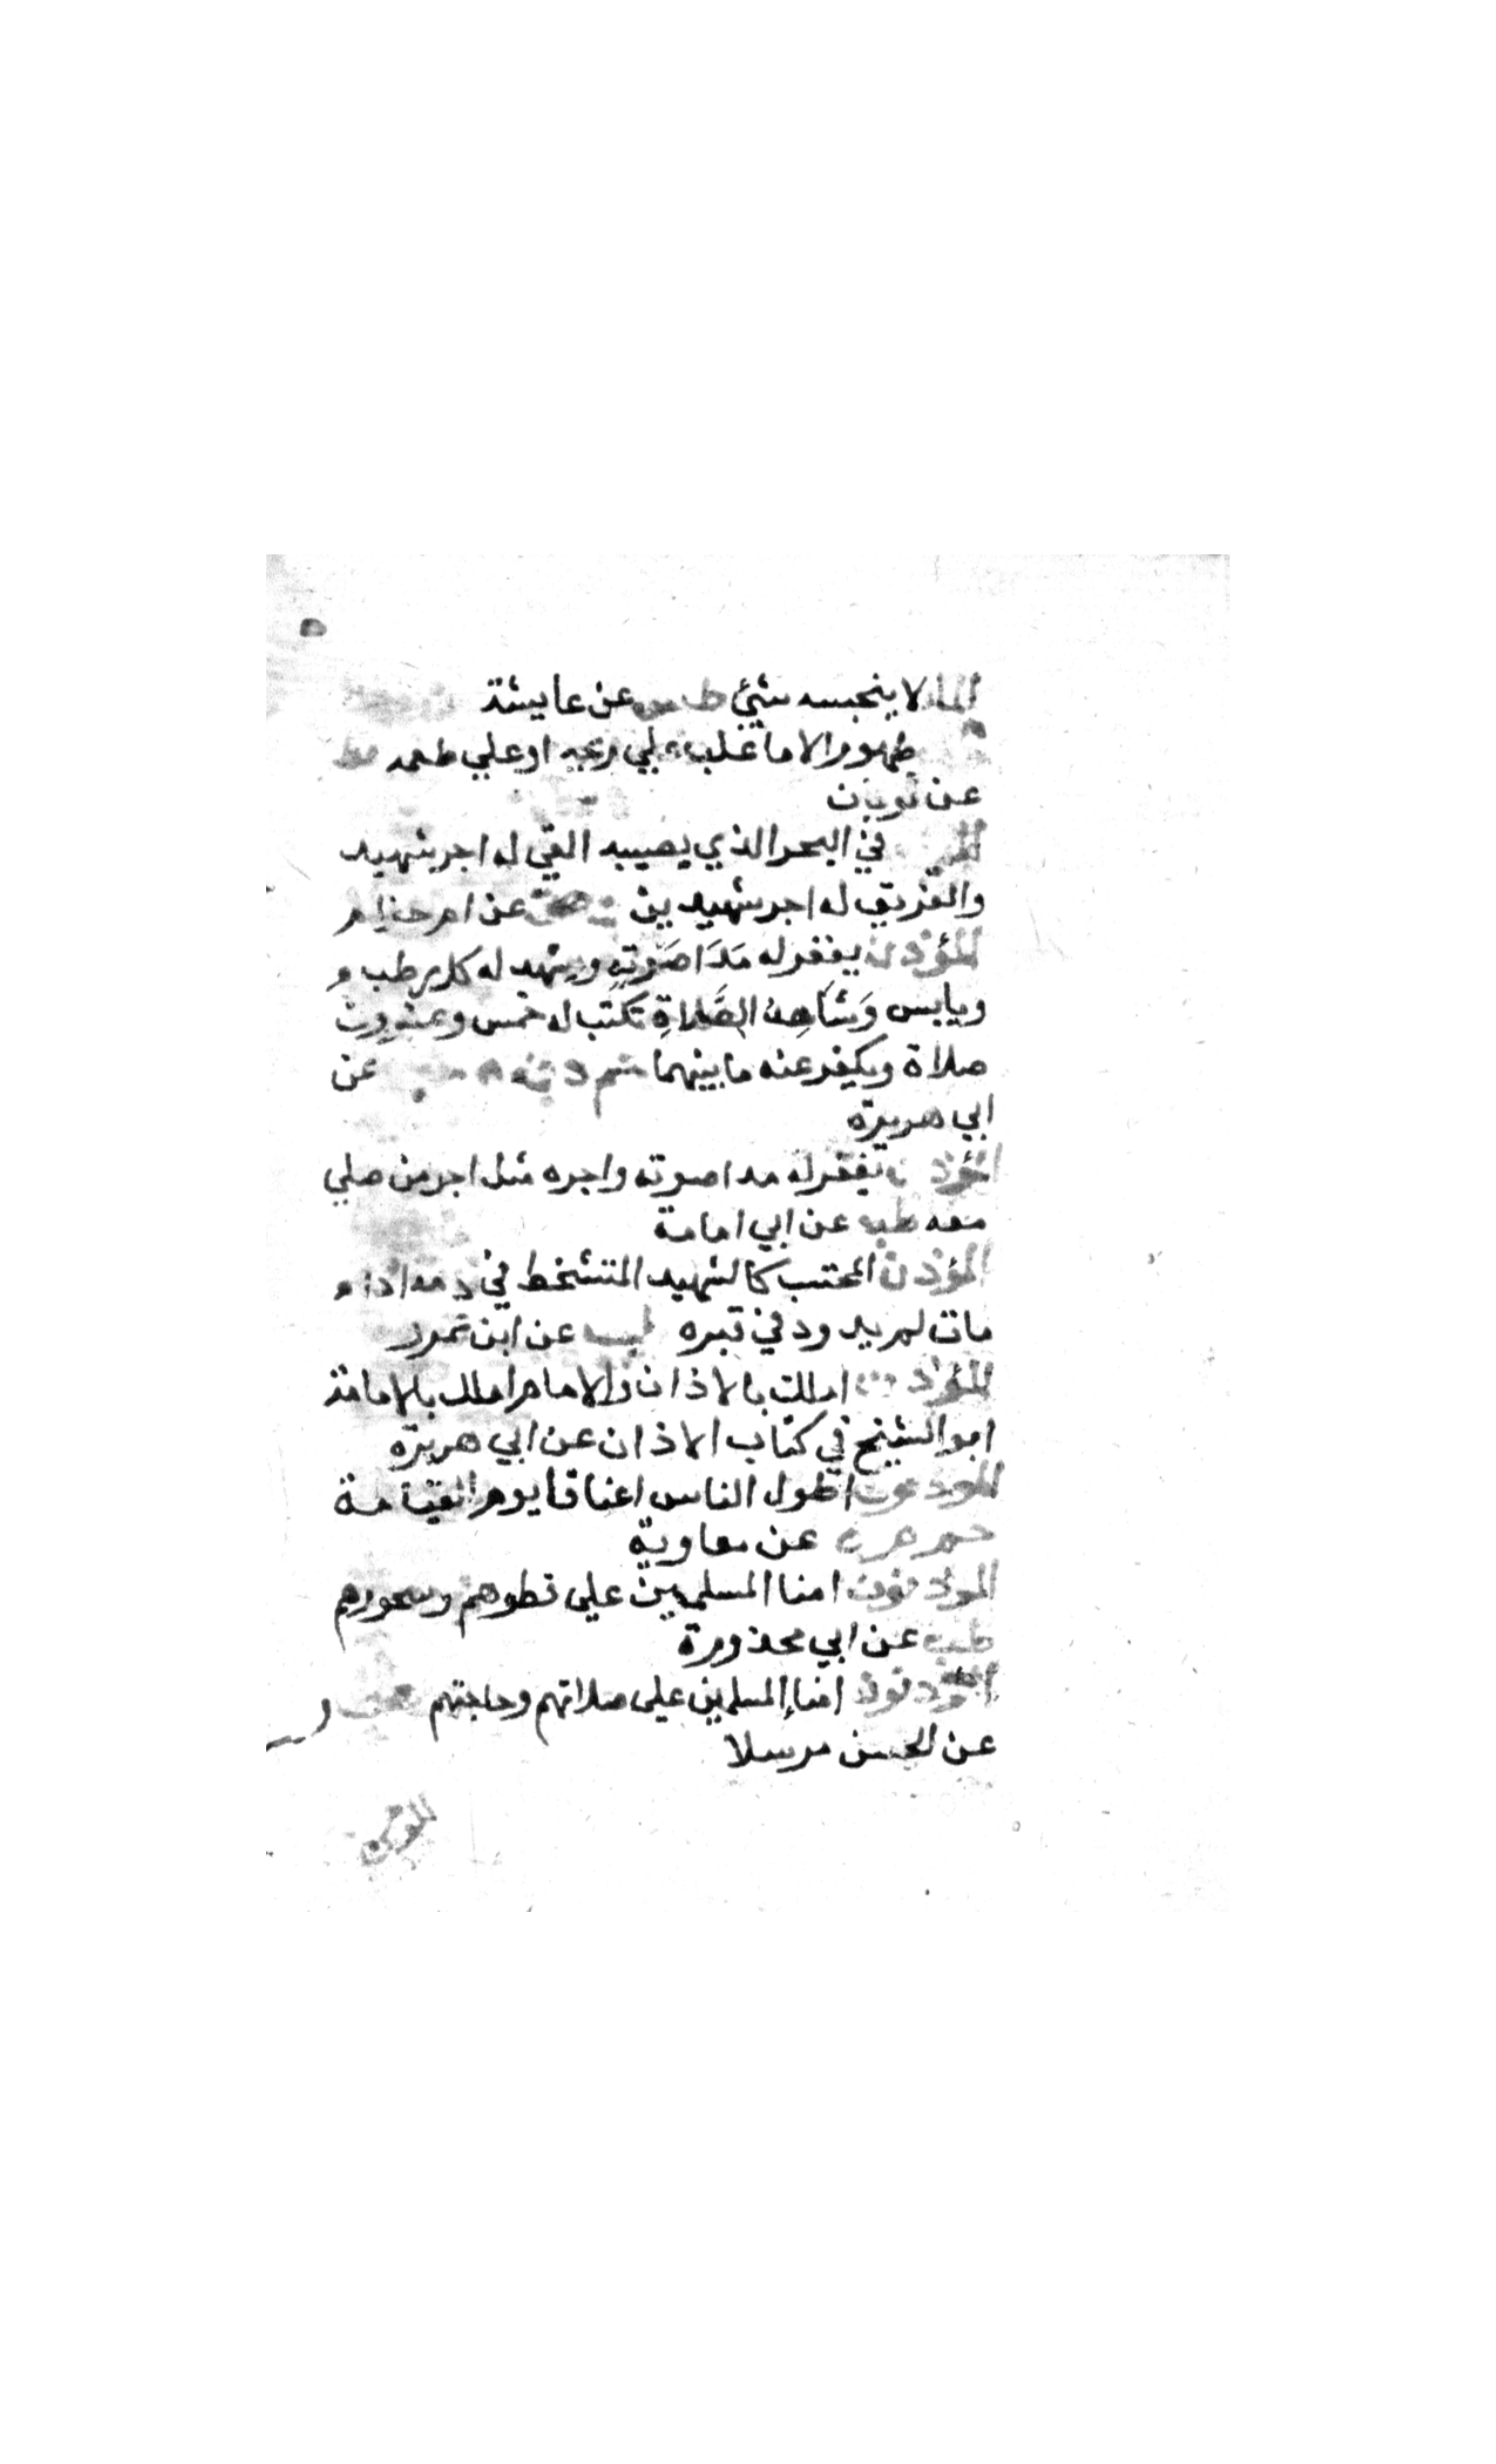 الماء لا ينجسه شئ طس عن عايشة
طهور الا ما غلب علي ريحه او علي طعمه قط
عن ثوبان
في البحر الذي يصيبه القي له اجر شهيد
والغريق له اجر شهيدين عن ام حزام
المؤذن يغفر له مَدَا صَوتِهِ ويشهد له كل رطب و
ويابس وَشَاهِدُ الصَّلاةِ تكتب له خمس وعشرون
صلاة ويكفر عنه ما بينهما حم د ن ه حب عن
ابي هريرة
المؤذن يغفر له مدا صوته واجره مثل اجر من صلي
معه طب عن ابي امامة
المؤذن المحتسب كالشهيد المتشخط في دمه اذا و
مات لم يدود في قبره طب عن ابن عمرو
المؤذن املك بالاذان والامام املك بالامامة
ابو الشيخ في كتاب الاذان عن ابي هريرة
الموذنون اطول الناس اعناقا يوم القيامة
حم م ه عن معاوية
الموذنون امنا المسلمين علي فطرهم وسحورهم
طب عن ابي محذورة
المؤذنون امناء المسلمين علي صلاتهم وحاجتهم هق
عن الحسن مرسلا
المؤمن